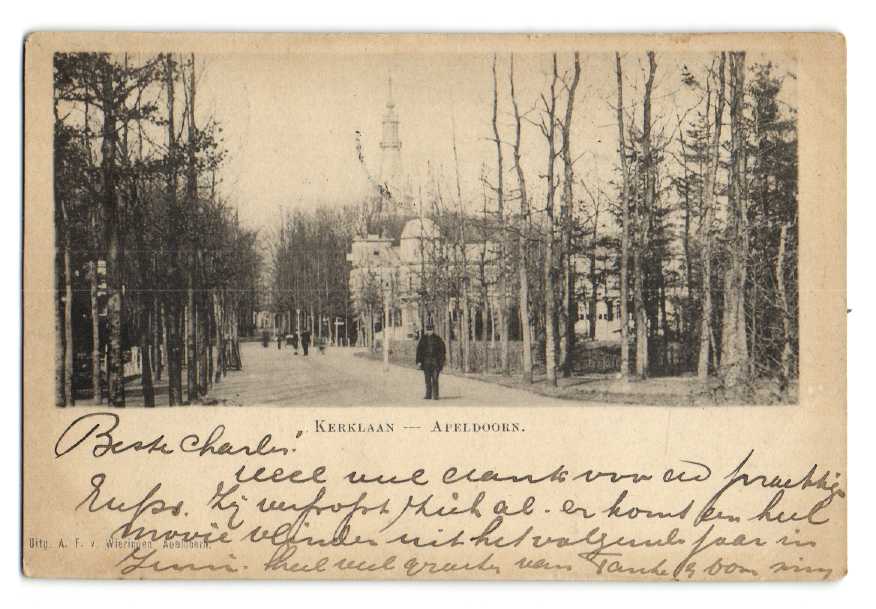 KERKLAAN — APELDOORN.
Beste Charles!
veel veel dank voor de prachtige
Rups. Zij verpopt zich al. er komt een heel
mooie vlinder uit het volgende jaar in
Uitg. A. F. v. Wieringen, Apeldoorn.
Juni. heel veel groeten van Tante